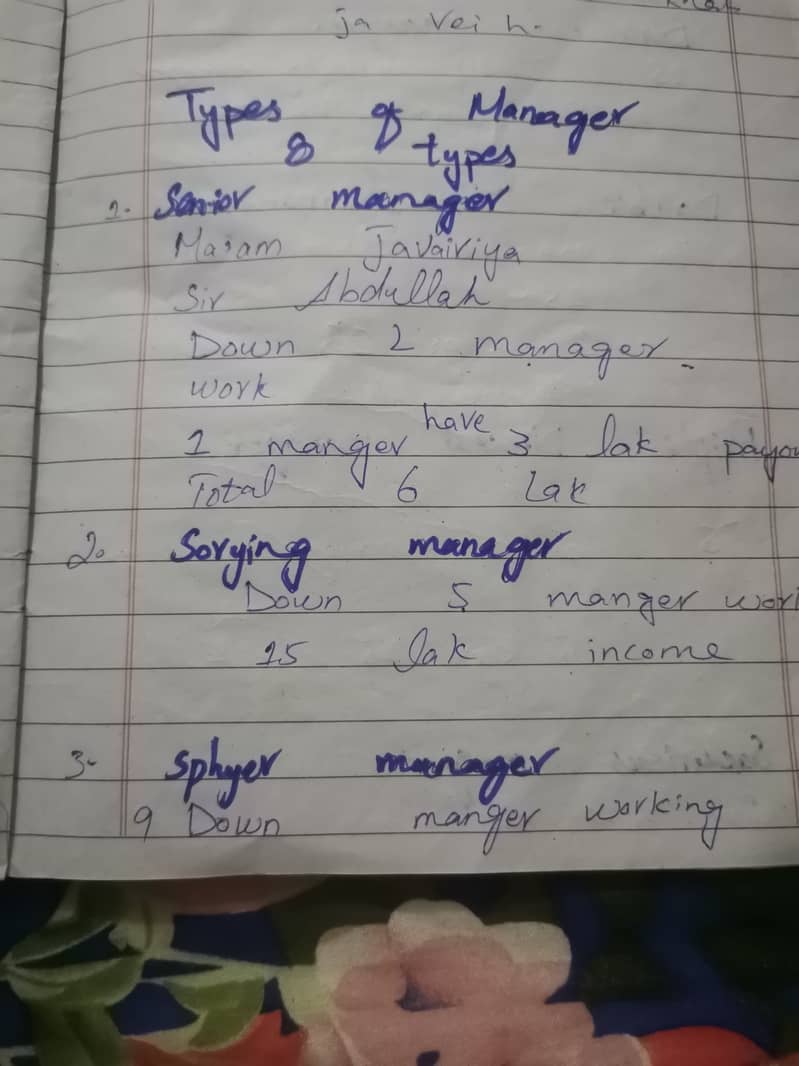 ja vei h.
Types of Manager
8 types
1. Senior manager
Maram Javairiya
Sir Abdullah
Down 2 manager
work
1 manger have 3 lak payou
Total 6 Lak
2. Sorying manager
Down 5 manger wor
15 lak income
3- sphyer manager
9 Down manger working